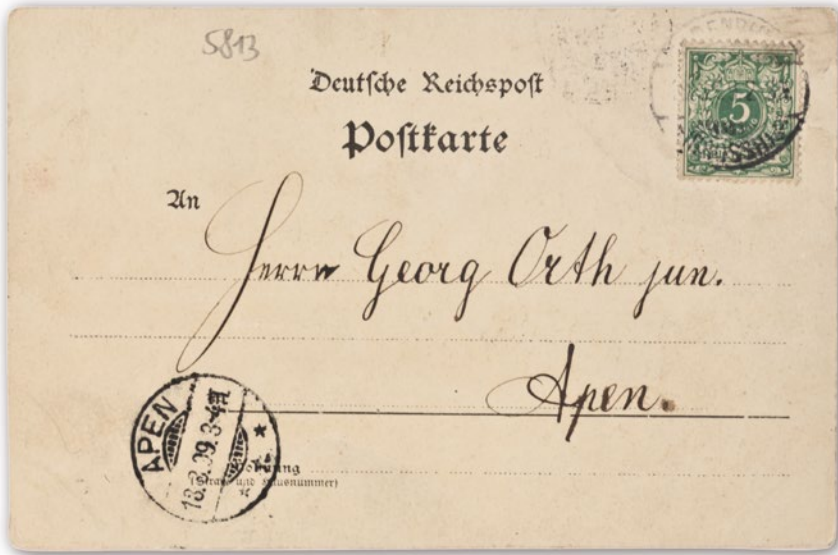 5813
Deutsche Reichspost
Postkarte
5
An
Herrn Georg Orth jun.
Apen.
APEN
18.8.99.3-4N
Wohnung
(Straße und Hausnummer)